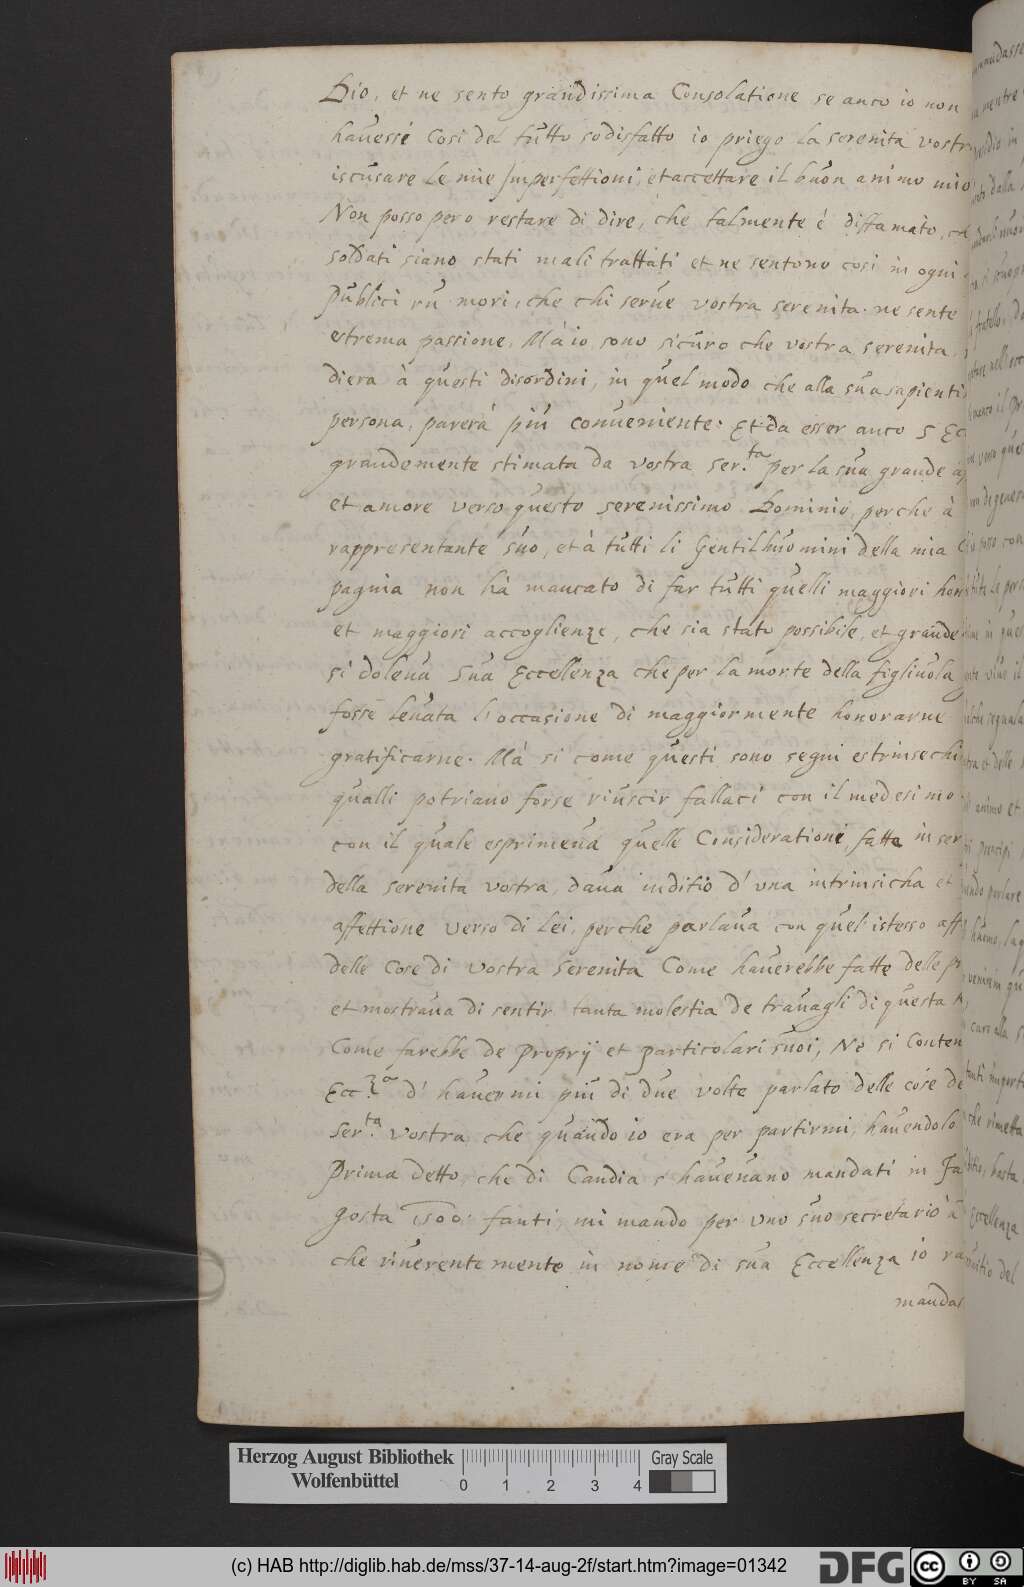 Dio, et ne sento grandissima Consolatione se anco io non
havesse Cosi del tutto sodisfatto io priego la serenità vostra
iscusare Le mie Imperfettioni, et accettare il buon animo mio
Non posso pero restare di dire, che talmente è diffamato, che
soldati siano stati mali trattati et ne sentono cosi in ogni
Publici ru mori, che chi serue vostra serenita. ne sente
estrema passione, Mà io sono sicuro che vostra serenita,
diera à questi disordini, in quel modo che alla sua sapientis
persona, parerà più conueniente. Et da esser anco S Ecc
grandemente stimata da vostra ser.ta per la sua grande
et amore verso questo serenissimo Dominio, perche à
rappresentante suo, et à tutti li Gentilhuomini della mia
pagnia non hà mancato di far tutti quelli maggiori hon
et maggiori accoglienze, che sia stato possibile, et grande
si doleua Sua Eccellenza che per la morte della figliuola
fosse leuata l'occasione di maggiormente honorarne
gratificarne. Mà si come questi sono segni estrinsechi
qualli potriano forse riuscir fallaci con il medesimo
con il quale esprimeua quelle Considerationi, fatte in ser
della serenita vostra, daua inditio d' vna intrinsicha et
affettione verso di Lei, perche parlaua con quel istesso aff
delle Cose di vostra Serenita Come hauerebbe fatte delle pr
et mostraua di sentir tanta molestia de trauagli di questa
Come farebbe de Proprij et particolari suoi, Ne si Conten
Ecc.za d' hauermi più di due volte parlato delle cose de
Ser.ta Vostra che quando io era per partirmi, hauendolo
Prima detto, che di Candia s' haueuano mandati in Fa
gosta 1500. fanti, mi mando per vno suo secretario à
che riuerentemente in nome di sua Eccellenza io ra
mandas
Herzog August Bibliothek
Wolfenbüttel
0 1 2 3 4
Gray Scale
(c) HAB http://diglib.hab.de/mss/37-14-aug-2f/start.htm?image=01342
DFG
cc BY SA